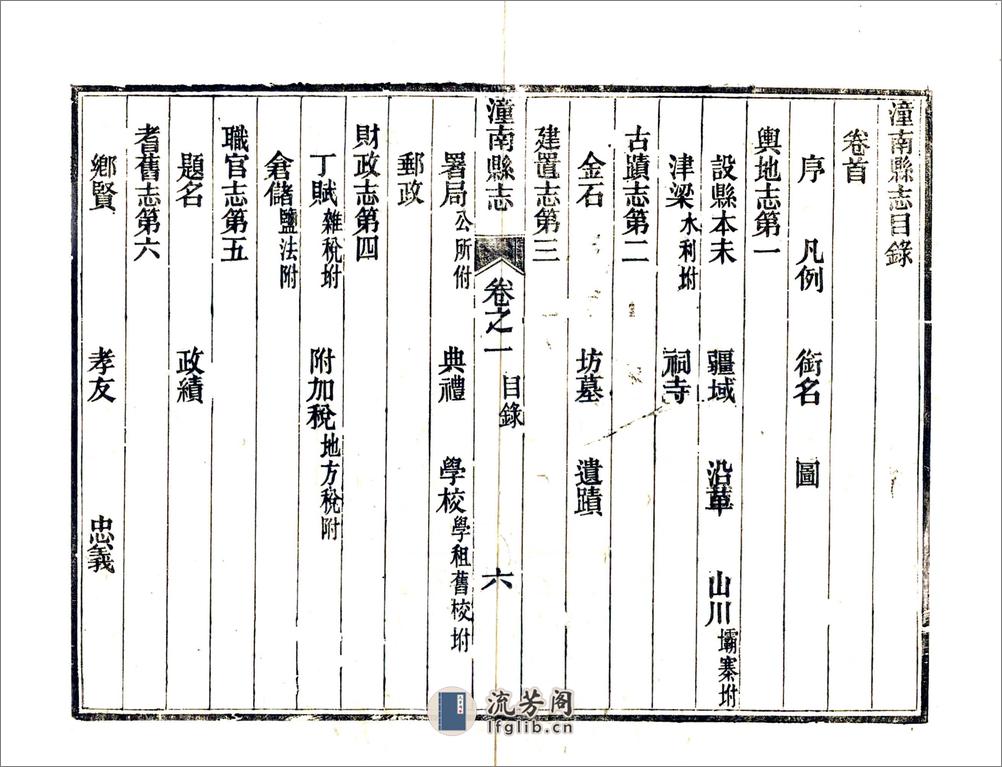 潼南縣志目錄
卷首
序 凡例 銜名 圖
輿地志第一
設縣本末 疆域 沿革 山川壩寨坿
津梁水利坿 祠寺
古蹟志第二
金石 坊墓 遺蹟
建置志第三
潼南縣志 卷之一 目錄 六
署局公所附 典禮 學校學租舊校坿
郵政
財政志第四
丁賦雜稅坿 附加稅地方稅附
倉儲鹽法附
職官志第五
題名 政績
耆舊志第六
鄉賢 孝友 忠義
流芳阁
lfglib.cn